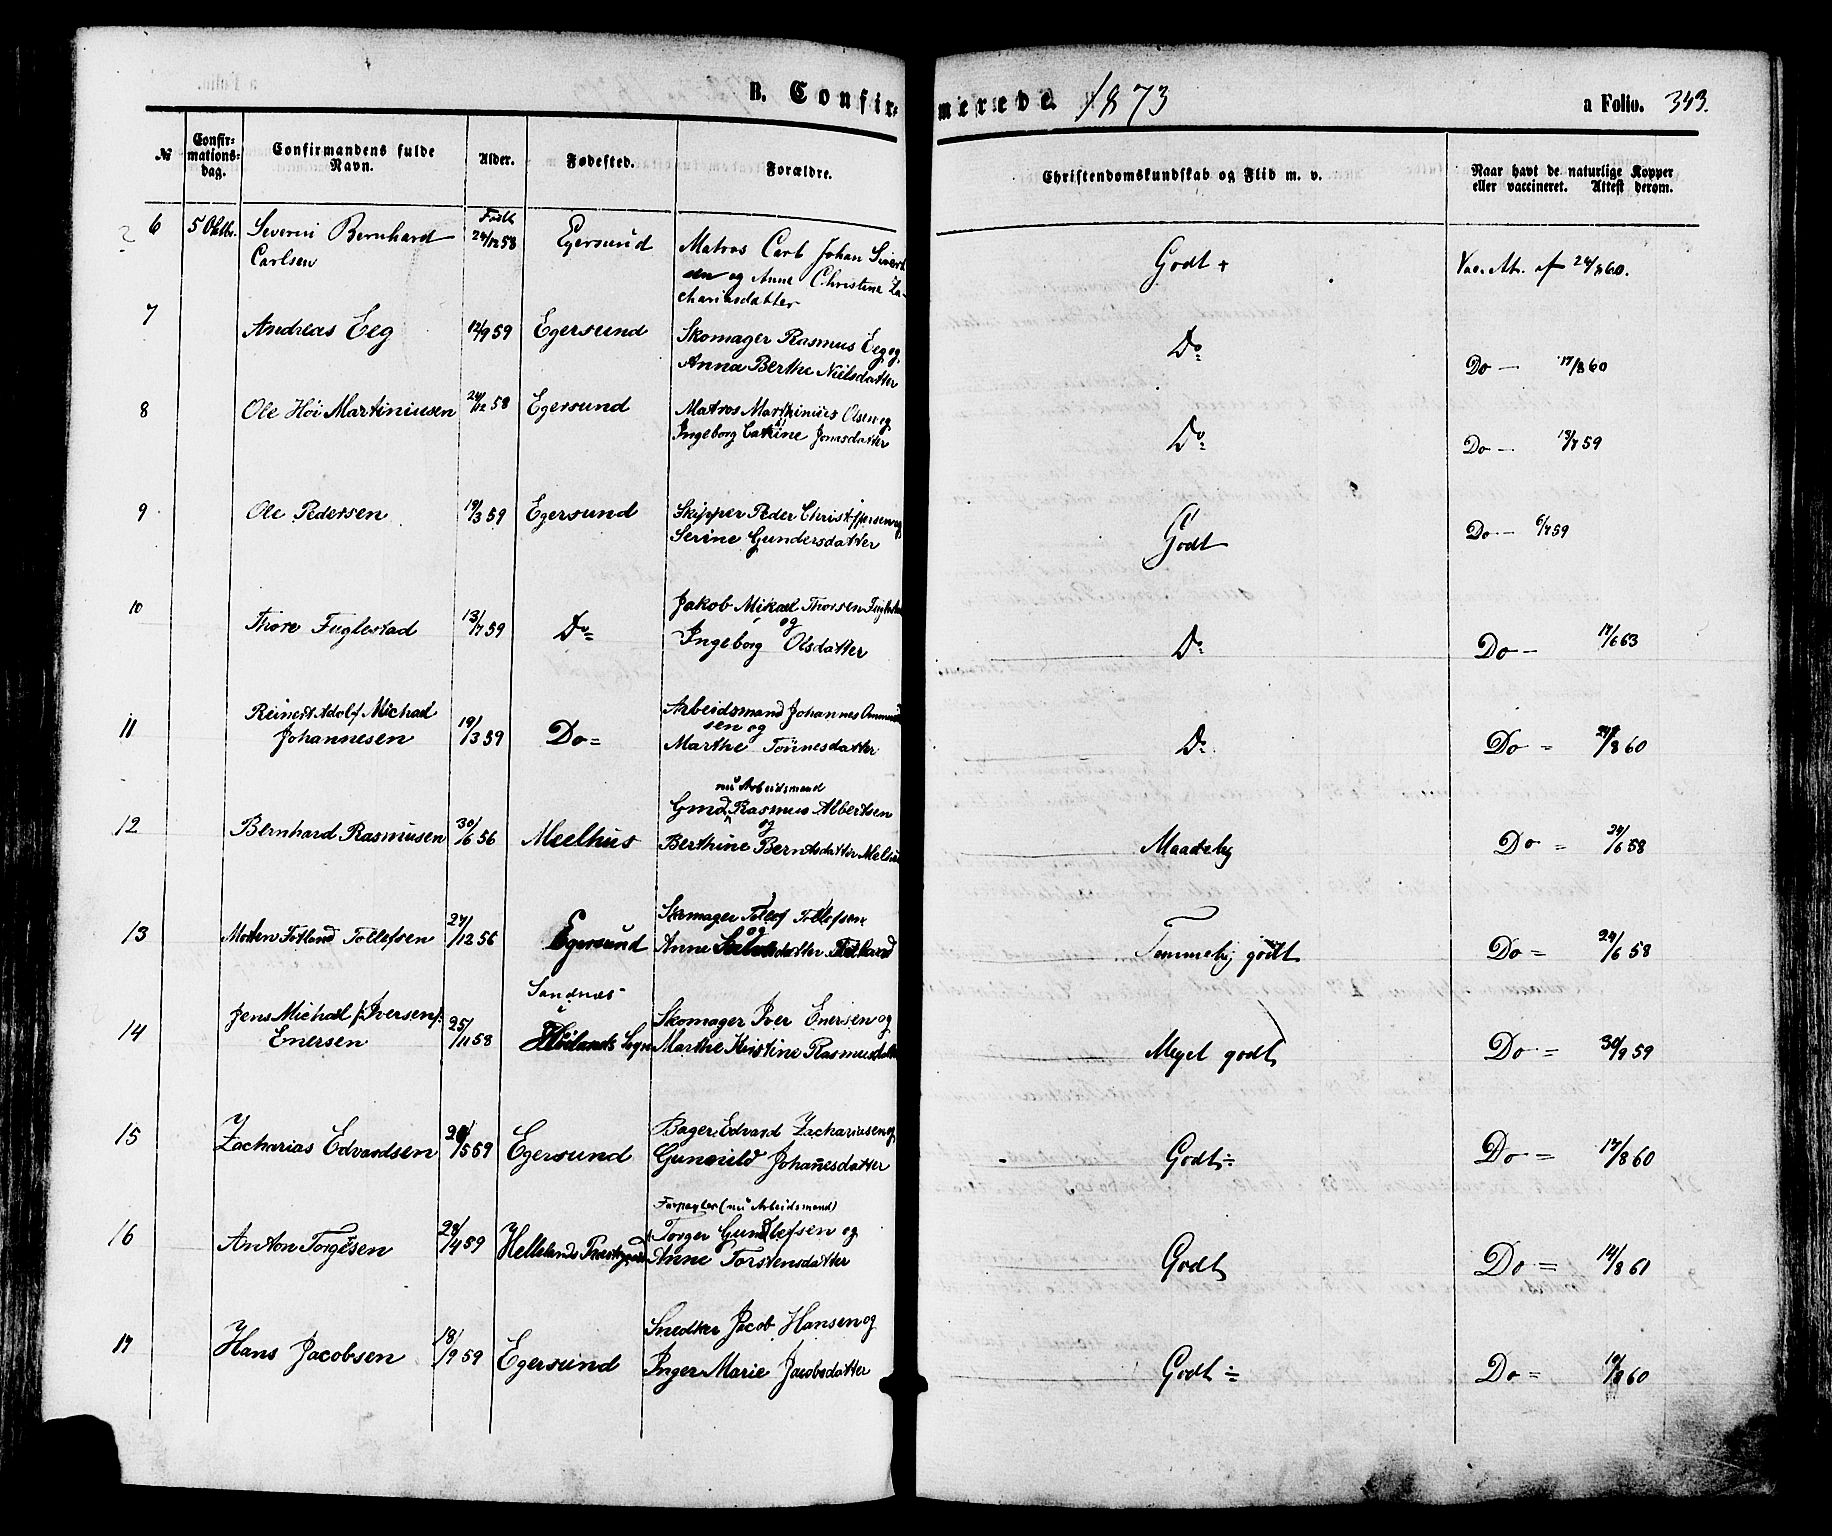 B. Confirmerede. 1873
a Folio. 343.
№
Confirmationsdag.
Confirmandens fulde Navn.
Alder.
Fødested.
Forældre.
Christendomskundskab og Flid m. v.
Naar havt de naturlige Kopper eller vaccineret. Attest derom.
6 5 Oktbr. Severin Bernhard Født 24/12 58 Egersund Matros Carl Johan Sivert Godt + Vac. At. af 24/8 60.
Carlsen sen og Anne Christine Za-
chariasdatter
7 Andreas Eeg 12/9 59 Egersund Skomager Rasmus Eeg og Do Do — 17/8 60
Anna Berthe Nielsdatter
8 Ole Höi Martiniusen 24/12 58 Egersund Matros Marthinius Olsen og Do Do — 13/7 59
Ingeborg Catrine Jonasdatter
9 Ole Pedersen 19/3 59 Egersund Skipper Peder Christoffersen og Godt Do — 6/7 59
Serine Gundersdatter
10 Thore Fuglestad 13/7 59 Do Jakob Mikael Thorsen Fuglestad Do Do — 17/6 63
og
Ingeborg Olsdatter
11 Reinert Adolf Michael 19/3 59 Do = Arbeidsmand Johannes Ommund Do Do = 8 60
Johannesen sen og
Marthe Tönnesdatter
nu Arbeidsmand
12 Bernhard Rasmusen 30/6 56 Meelhus Gmd. Rasmus Albertsen Maadelig Do = 24/6 58
og
Berthine Berntsdatter
13 Morten Fotland Tollefsen 27/12 56 Egersund Skomager Tollef Tollefsen Temmelig godt Do = 24/6 58
og
Anne
Sandnæs
14 Jens Michael /: Iversen :/ 25/11 58 Höilands Sogn Skomager Iver Enersen og Meget godt Do = 30/9 59
Enersen Marthe Kristine Rasmusdatter
15 Zacharias Edvardsen 5 59 Egersund Bager Edvard Zachariasen og Godt ÷ Do = 17/8 60
Gunvild Johanesdatter
Forpagter (nu Arbeidsmand)
16 Anton Torgesen 29/4 59 Hellelands Præstegaard Torger Gundlefsen og Godt Do = 14/8 61
Anne Torstensdatter
17 Hans Jacobsen 18/9 59 Egersund Snedker Jacob Hansen og Godt ÷ Do = 8 60
Inger Marie Jacobsdatter